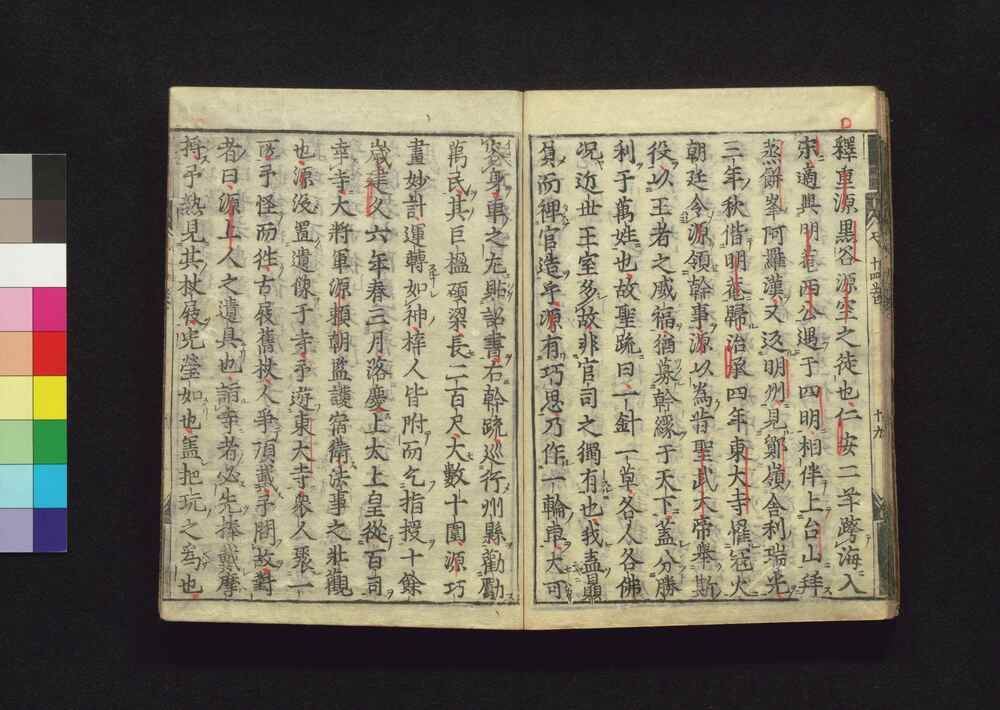 釋重源黒谷源空之徒也仁安二年跨海入
宋適與明菴西公遇于四明相伴上台山拜
蒸餅峯阿羅漢又返明州見鄮嶺舍利瑞光
三年秋偕明菴歸治承四年東大寺罹冦火
朝廷令源領幹事源以為昔聖武大帝舉斯
役以王者之威福猶募幹縁于天下蓋分勝
利于萬姓也故聖疏曰一針一草各人各佛
况近世王室多故非官司之獨有也我盍贔
屓而禆官造乎源有巧思乃作一輪車大可
容身車之左貼詔書右幹疏巡行州縣勸勵
萬民其巨楹碩梁長二百尺大數十圍源巧
畫妙計運轉如神梓人皆附而乞指授十餘
歳建久六年春三月落慶上太上皇從百司
幸寺大將軍源頼朝監護宿衛法事之壯觀
也源没置遺像于寺予遊東大寺衆人聚一
所予怪而徃古屐舊杖人爭頂戴予問故對
者曰源上人之遺具也詣寺者必先捧戴摩
捋予熟見其杖屐光瑩如也蓋把玩之多也
十九